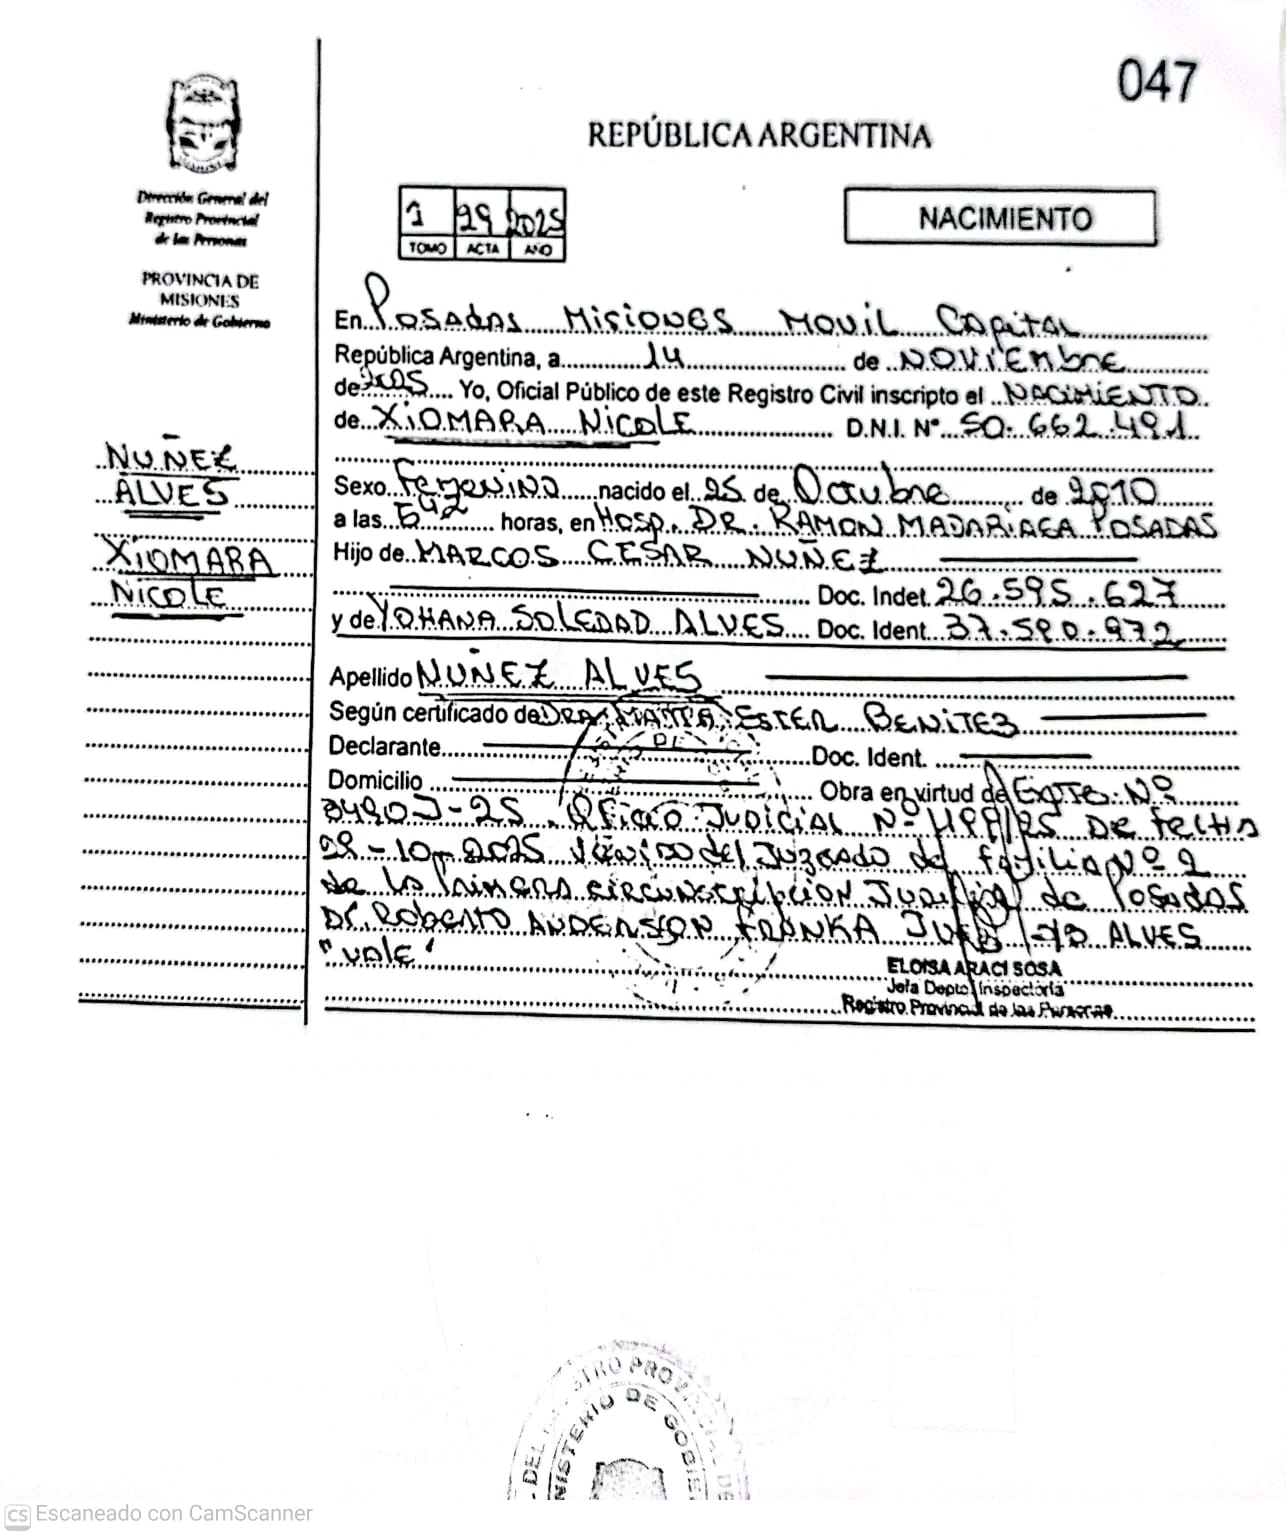 047
REPÚBLICA ARGENTINA
Dirección General del
Registro Provincial
de las Personas
PROVINCIA DE
MISIONES
Ministerio de Gobierno
1 29 2025
TOMO ACTA AÑO
NACIMIENTO
En Posadas Misiones Movil Capital
República Argentina, a 14 de Noviembre
de 2025 Yo, Oficial Público de este Registro Civil inscripto el Nacimiento
de Xiomara Nicole D.N.I. N° 50.662.491
NUÑEZ
ALVES
XIOMARA
NICOLE
Sexo Femenino nacido el 25 de Octubre de 2010
a las 5 42 horas, en Hosp. Dr. Ramon Madariaga Posadas
Hijo de Marcos Cesar Nuñez
Doc. Indet. 26.595.627
y de Yohana Soledad Alves Doc. Ident. 37.590.972
Apellido Nuñez Alves
Según certificado de Dra. Ester Benitez
Declarante Doc. Ident.
Domicilio Obra en virtud de Expte. Nº
Oficio Judicial Nº De Fecha
29-10-2025 del Juzgado de Familia Nº 2
de la Primera circunscripcion Judicial de Posadas
Dr. Roberto Anderson Franka Juez ALVES
"Vale"
ELOISA ARACI SOSA
Jefa Depto. Inspectoria
Registro Provincial de las Personas
MINISTERIO DE GOBIE
CS Escaneado con CamScanner